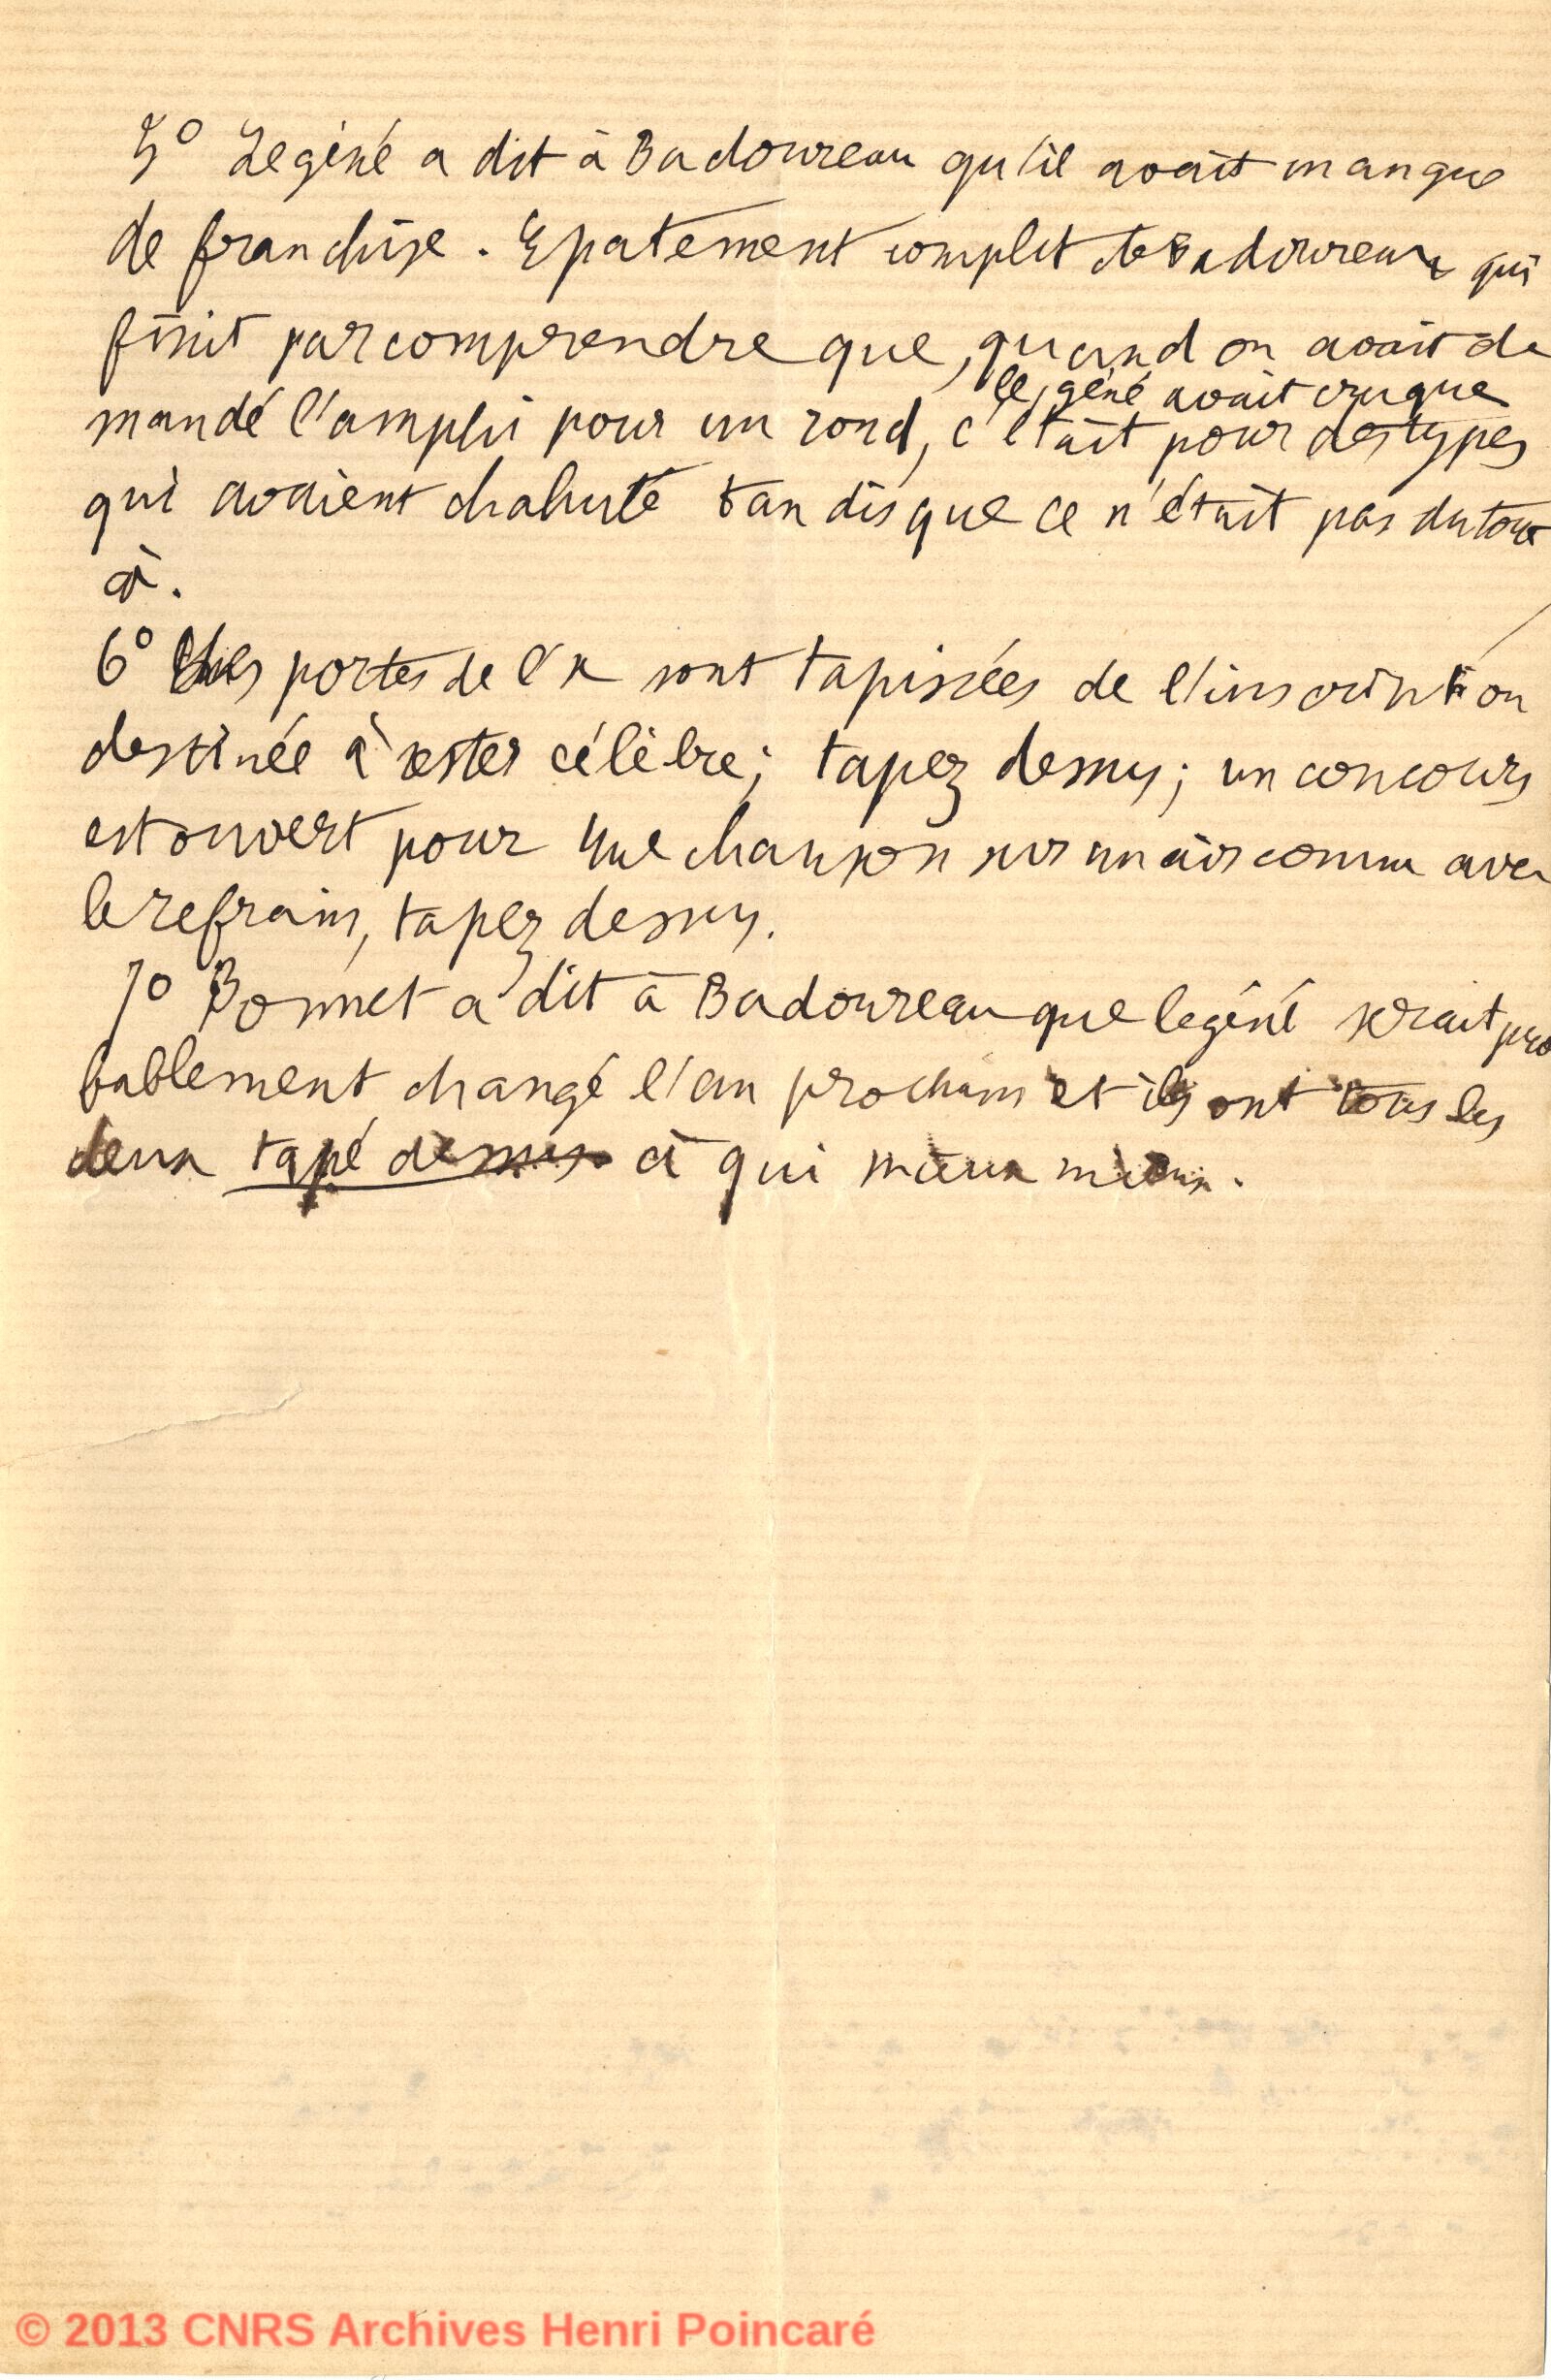 5° Le géné a dit à Badoureau qu'il avait manqué
de franchise. Epatement complet de Badoureau qui
finit par comprendre que, quand on avait de
le géné avait cru que
mandé l'amphi pour un rond, c'était pour des types
qui avaient chahuté tandis que ce n'était pas du tout
ça.
6° Les portes de l'X sont tapissées de l'inscription
destinée à rester célèbre; tapez dessus; un concours
est ouvert pour une chanson sur un air connu avec
le refrain, tapez dessus.
7° Bonnet a dit à Badoureau que le géné serait pro
bablement changé l'an prochain et ils ont tous les
deux tapé dessus à qui mieux mieux.
© 2013 CNRS Archives Henri Poincaré